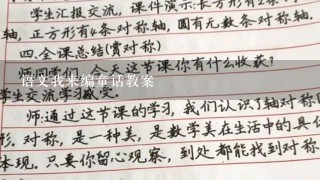 学生汇报交流,课件演示:长方形有2条
轴,正方形有4条对称轴,圆有无数条对称轴.
四.全课总结(赏对称)
师:同学们,今天这节课你有什么收获?
语文我来编童话教案
学生交流学习感受.
师:通过这节课的学习,我们认识了轴对称
形.对称,是一种美,是数学美在生活中的具
体现.只要你留心观察,到处都能找到对称